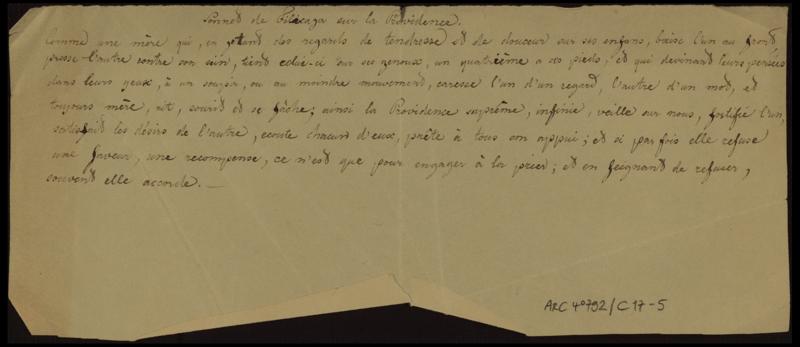 Sonnet de Filicaga sur la Providence.
Comme une mère qui, en jetant des regards de tendresse et de douceur sur ses enfans, baise l'un au front
presse l'autre contre son sein, tient celui-ci sur ses genoux, un quatrième a ses pieds, et qui devinant leurs pensées
dans leurs yeux, à un soupir, ou au moindre mouvement, caresse l'un d'un regard, l'autre d'un mot, et
toujours mère, rit, sourit et se fâche; ainsi la Providence suprême, infinie, veille sur nous, fortifie l'un,
satisfait les désirs de l'autre, ecoute chacun d'eux, prête à tous son appui; et si par fois elle refuse
une faveur, une recompense, ce n'est que pour engager à la prier; et en feignant de refuser,
souvent elle accorde. —
ARC 4° 792/C 17-5